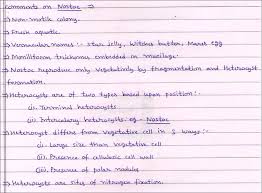 Comments on Nostoc ⇒
⇒ Non-motile colony.
⇒ Fresh aquatic
⇒ Vernacular names :- star jelly, Witches butter, Mares egg
⇒ Monilliform trichomes embedded in mucilage.
⇒ Nostoc reproduce only vegetatively by fragmentation and Heterocyst
formation.
⇒ Heterocysts are of two types based upon position :-
(i) Terminal heterocysts
(ii) Intercalary heterocysts. eg - Nostoc
⇒ Heterocyst differs from vegetative cell in 3 ways :-
(i) Large size than vegetative cell
(ii) Presence of cellulosic cell wall
(iii) Presence of polar nodule
⇒ Heterocysts are sites of nitrogen fixation.